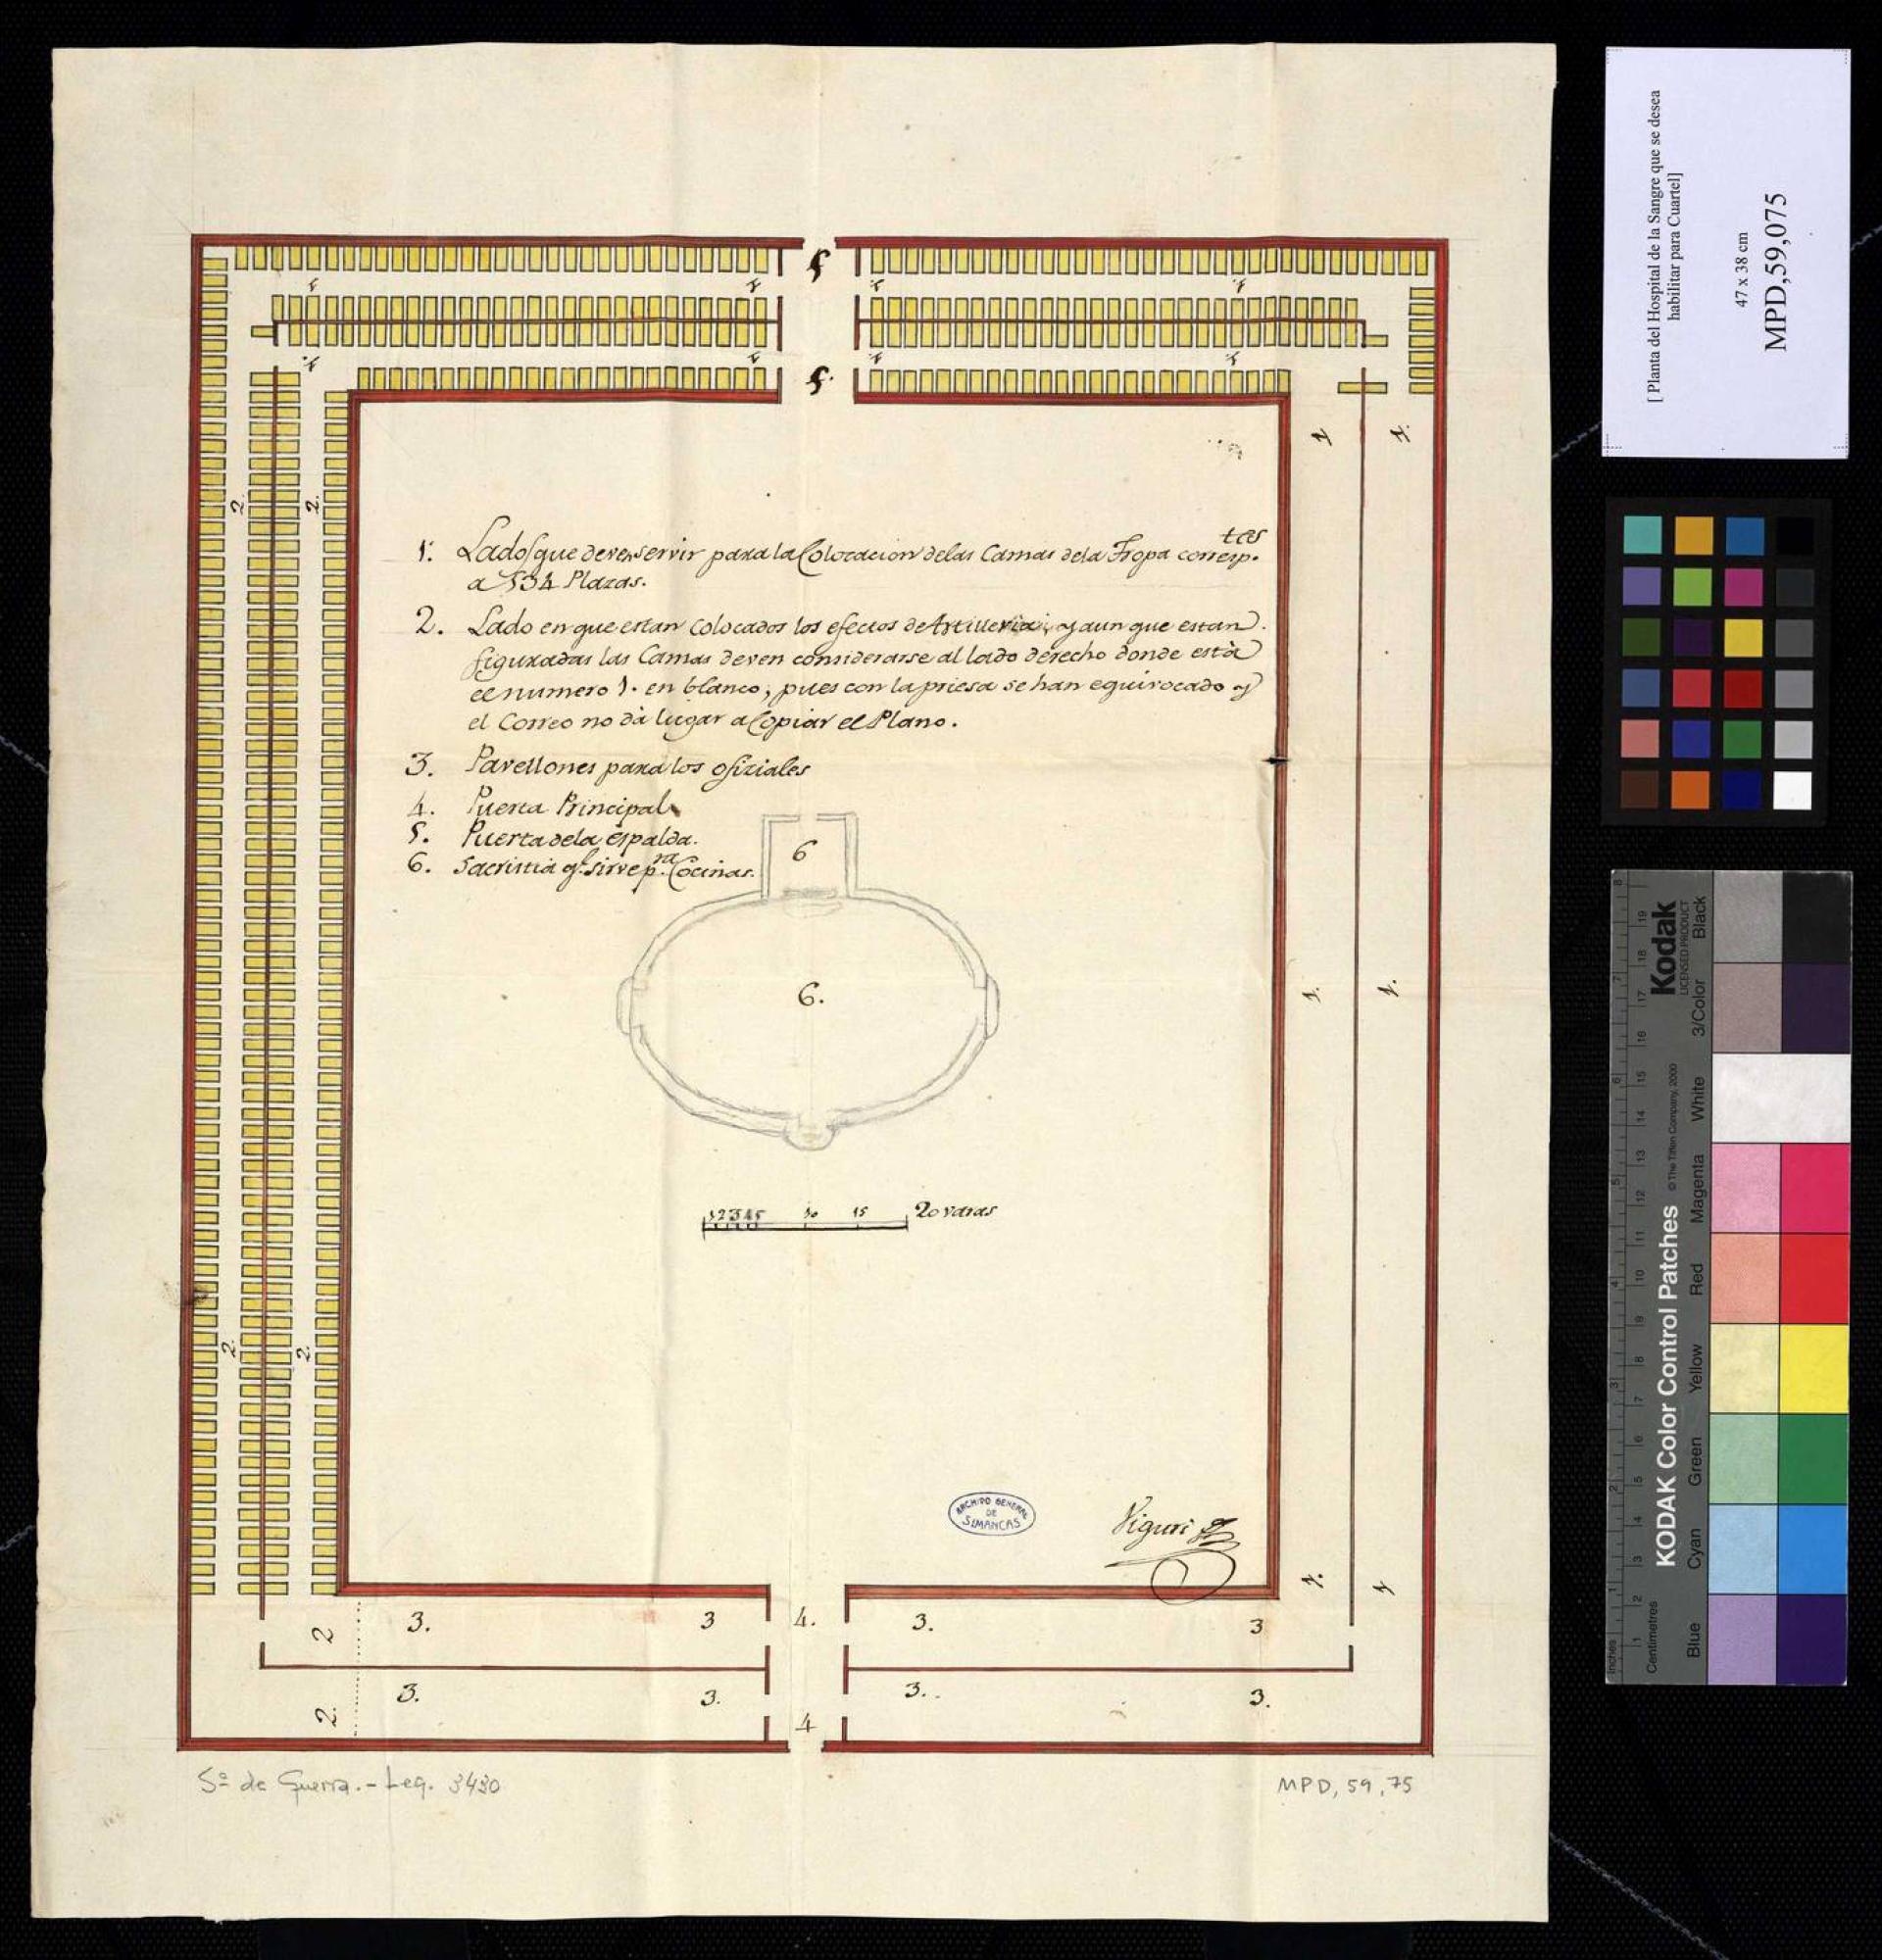 5
1 1 1 1
1 1 1 1
5.
2. 2.
1 1.
1.. Lados que deven servir para la Colocacion de las Camas de la Tropa corresp.tes
a 534 Plazas.
2. Lado en que estan Colocados los efectos de Artilleria; y aun que estan
figuradas las Camas deven considerarse al lado derecho donde està
el numero 1. en blanco; pues con la priesa se han equivocado y
el Correo no dà lugar a Copiar el Plano.
3. Pavellones para los ofiziales
4. Puerta Principal
5. Puerta de la espalda.
6. Sacristia q.e sirve p.ra Cocinas.
6
6.
1. 1.
1 2 3 4 5 10 15 20 varas
2. 2.
ARCHIVO GENERAL
DE
SIMANCAS
Viguri
1. 1
2 3. 3 4. 3. 3
2. 3. 3. 4 3. 3.
Sª de Guerra.- Leg. 3430
MPD, 59, 75
[ Planta del Hospital de la Sangre que se desea
habilitar para Cuartel]
47 x 38 cm
MPD,59,075
KODAK Color Control Patches
© The Tiffen Company, 2000
Kodak
LICENSED PRODUCT
Inches 1 2 3 4 5 6 7 8
Centimetres 1 2 3 4 5 6 7 8 9 10 11 12 13 14 15 16 17 18 19
Blue Cyan Green Yellow Red Magenta White 3/Color Black